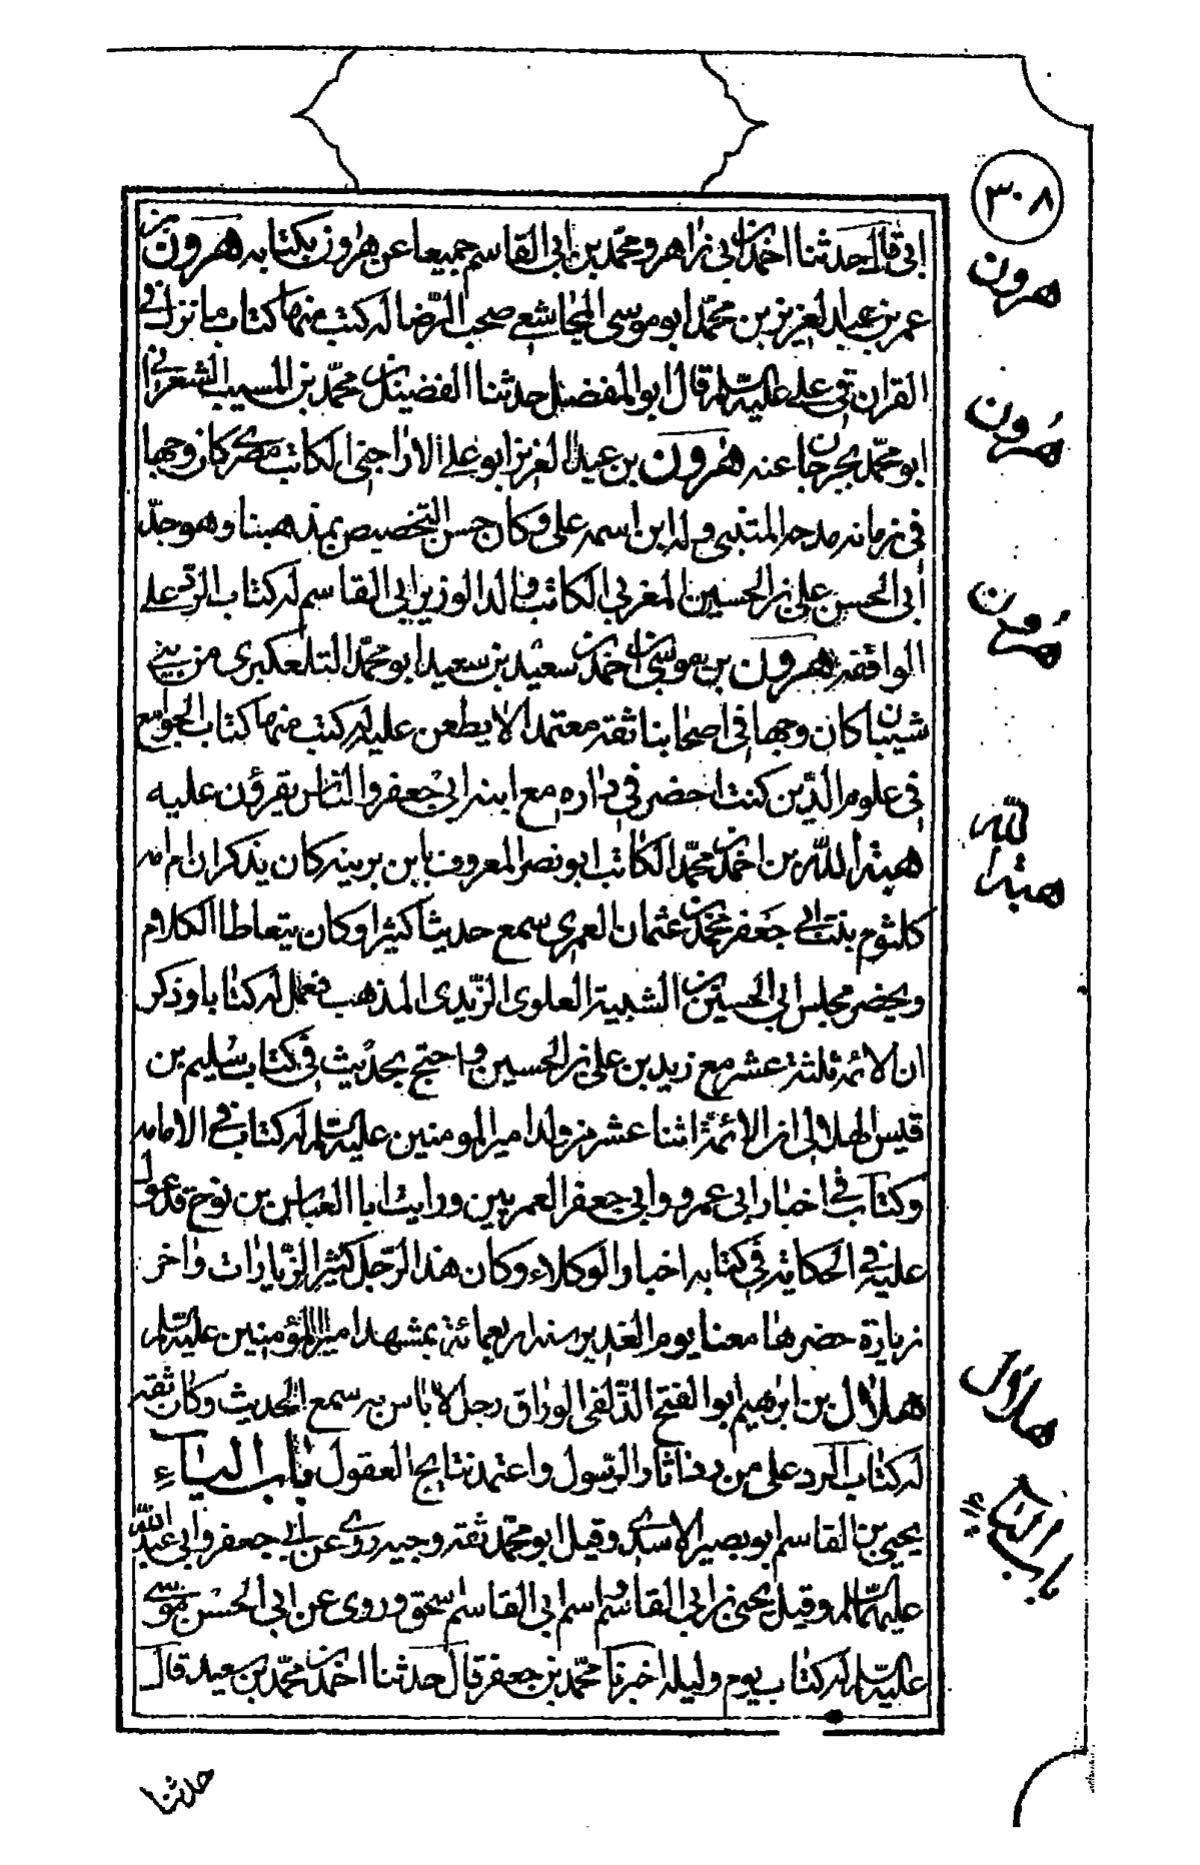 ٣٠٨
ابى قال حدثنا احمد بن ابى زاهر و محمد بن ابى القاسم جميعا عن هرون بكتابه هرون بن
عمر بن عبد العزيز بن محمد ابو موسى المجاشعى صحب الرضا له كتب منها كتاب ما نزل فى
القران فى على عليه السلم قال ابو المفضل حدثنا الفضل بن محمد بن المسيب الشعرانى
ابو محمد بجرجان عنه هرون بن عبد العزيز ابو على الاراجنى الكاتب مصرى كان وجها
فى زمانه مدحه المتنبى وله ابن اسمه على وكان حسن التخصيص بمذهبنا وهو جد
أبى الحسن على بن الحسين المغربى الكاتب والد الوزير ابى القاسم له كتاب الرد على
الواقفة هرون بن موسى بن احمد بن سعيد بن سعيد ابو محمد التلعكبرى من بنى
شيبان كان وجها فى اصحابنا ثقة معتمدا لا يطعن عليه له كتب منها كتاب الجوامع
فى علوم الدين كنت احضر فى داره مع ابنه ابى جعفر والناس يقرؤن عليه
هبة الله بن احمد بن محمد الكاتب ابو نصر المعروف بابن برينه كان يذكر ان ام امه
كلثوم بنت ابى جعفر محمد بن عثمان العمرى سمع حديثا كثيرا وكان يتعاطا الكلام
ويحضر مجلس ابى الحسين بن الشبيه العلوى الزيدى المذهب فعمل له كتابا وذكر
ان الائمة ثلثة عشر مع زيد بن على بن الحسين واحتج بحديث فى كتاب سليم بن
قيس الهلالى ان الائمة اثنا عشر من ولد امير المومنين عليه السلم له كتاب فى الامامة
وكتاب فى اخبار ابى عمرو وابى جعفر العمريين ورايت ابا العباس بن نوح قد عول
عليه فى الحكاية فى كتابه اخبار الوكلاء وكان هذا الرجل كثير الزيارات واخر
زيارة حضرها معنا يوم الغدير سنة اربعمائة بمشهد امير المؤمنين عليه السلم
هلال بن ابرهيم ابو الفتح الدلفى الوراق رجل لا باس به سمع الحديث وكان ثقة
له كتاب الرد على من رد اثار الرسول واعتمد نتايج العقول باب الياء
يحيى بن القاسم ابو بصير الاسدى وقيل ابو محمد ثقة وجيه روى عن ابى جعفر وابى عبد الله
عليهما السلم وقيل يحيى بن ابى القاسم واسم ابى القاسم اسحق وروى عن ابى الحسن موسى
عليه السلم له كتاب يوم وليلة اخبرنا محمد بن جعفر قال حدثنا احمد بن محمد بن سعيد قال
حدثنا
هرون
هرون
هرون
هبة الله
هلال
باب الياء